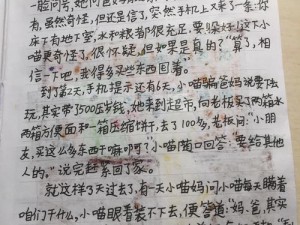 一脸问号,她问爸妈
有,虽然奇怪,但还是信了,突然手机上又来了一条:你
床下有地下室,水和粮都很充足,要躲好!这下小
喵更奇怪了,很怀疑,但如果是真的?"算了,相
信一下吧,我得多买些东西囤着。
到了第2天,手机提示还有6天,小喵骗爸妈说要下去
玩,其实带了500压岁钱,她来到超市,向老板买了两箱水
两箱方便面和一箱压缩饼干,去了100多,老板问:"小朋
友,买这么多东西干嘛呀?小喵随口回答:要给其他
人的。"说完赶紧回了家。
就这样了天过去了,有一天小喵妈问小喵每天瞒着
咱们干什么,小喵眼看装不下去,便答道:"妈、爸,其实